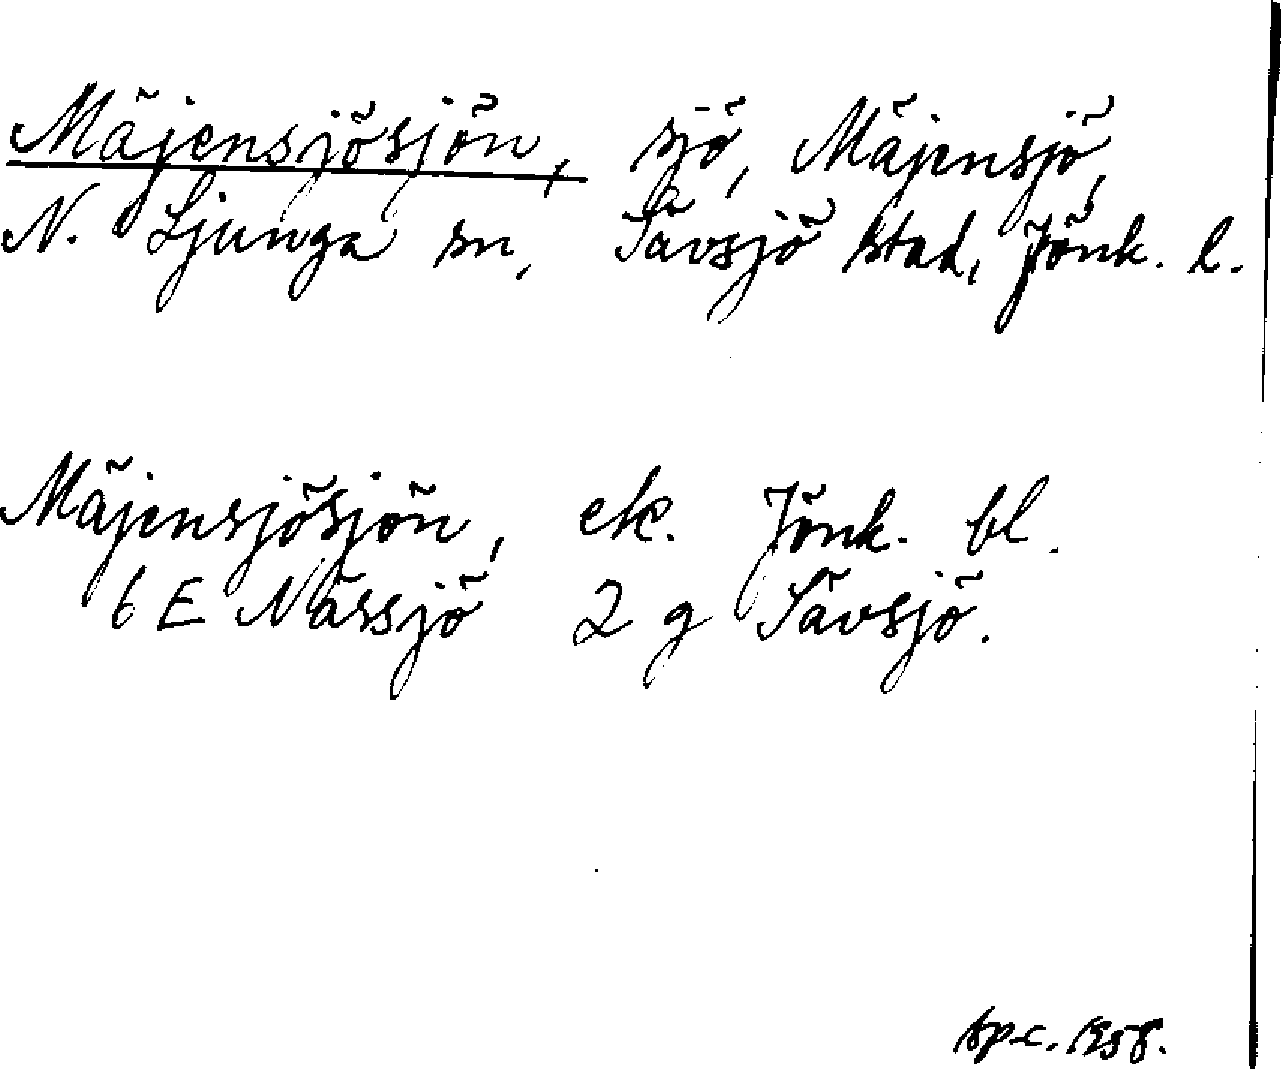 Mäjensjösjön, sjö, Mäjensjö,
N. Ljunga sn, Sävsjö stad, Jönk. l.
Mäjensjösjön, ek. Jönk. bl.
6 E Nässjö 2 g Sävsjö.
sp.c. 1958.